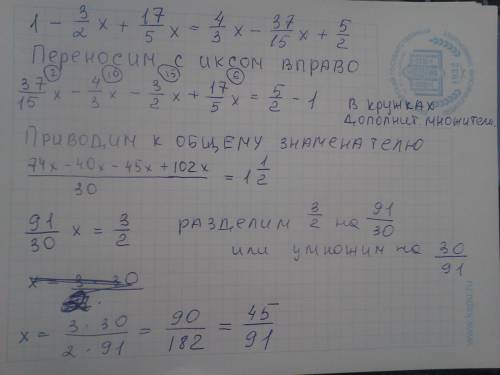 1 - 3/2 x + 17/5 x = 4/3 x - 37/15 x + 5/2
Переносим с иксом вправо
(2) (10) (15) (6)
37/15 x - 4/3 x - 3/2 x + 17/5 x = 5/2 - 1
В кружках
дополнит множители.
Приводим к общему знаменателю
74x - 40x - 45x + 102x / 30 = 1 1/2
91/30 x = 3/2
разделим 3/2 на 91/30
или умножим на 30/91
x = 3 · 30 / 2 · 91 = 90/182 = 45/91